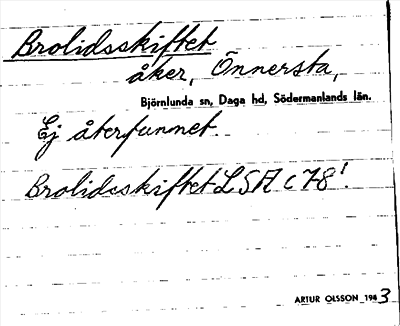 Brolidsskiftet
åker, Önnersta,
Björnlunda sn, Daga hd, Södermanlands län.
Ej återfunnet.
Brolidsskiftet LSA C78¹.
ARTUR OLSSON 1983